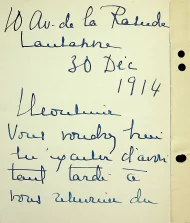 10 Av. de la Rasude
Lausanne
30 Déc
1914
Monsieur
Vous voudrez bien
m'excuser d'avoir
tant tardé à
vous remercier du